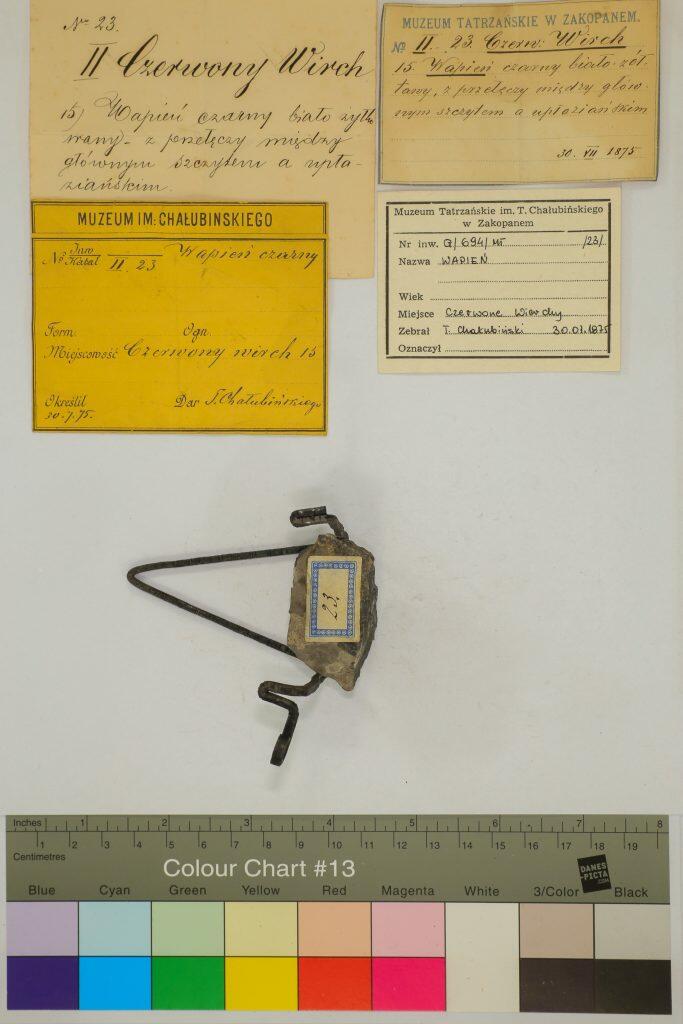 No 23.
II Czerwony Wirch
15) Wapień czarny biało żyłko
wany - z przełęczy między
głównym szczytem a upła-
ziańskim.
MUZEUM TATRZAŃSKIE W ZAKOPANEM.
No II. 23. Czerw: Wirch
15. Wapień czarny biało-żół-
tawy, z przełęczy między głów-
nym szczytem a upłaziańskim
30. VII 1875
MUZEUM IM: CHAŁUBINSKIEGO
No Inw Katal II. 23 Wapień czarny
Form. Ogn.
Miejscowość Czerwony wirch 15
Określił Dar T. Chałubińskiego
30.7.75.
Muzeum Tatrzańskie im. T. Chałubińskiego
w Zakopanem
Nr inw. G/694/MT /23/
Nazwa WAPIEŃ
Wiek
Miejsce Czerwone Wierchy
Zebrał T. Chałubiński 30.01.1875
Oznaczył
23.
Inches 1 2 3 4 5 6 7 8
1 2 3 4 5 6 7 8 9 10 11 12 13 14 15 16 17 18 19
Centimetres
Colour Chart #13
DANES
-PICTA
.COM
Blue Cyan Green Yellow Red Magenta White 3/Color Black